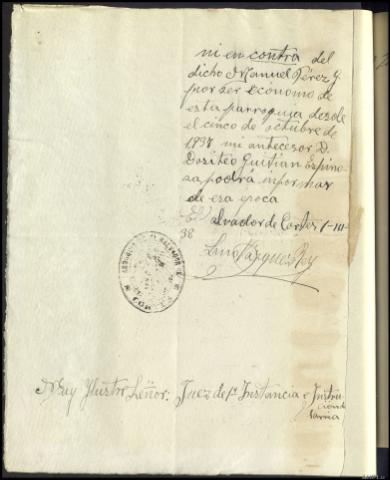 ni en contra del
dicho Manuel Pérez y
por ser Ecónomo de
esta parroquia desde
el cinco de octubre de
1937 mi antecesor D.
Dositeo Guitian Espino-
sa podrá informar
de esa época
El Salvador de Cortes 1-III-
38
Luis Vázquez Rey
Muy Ilustre Señor. Juez de 1ª Instancia e Instru
cción de
Sarria